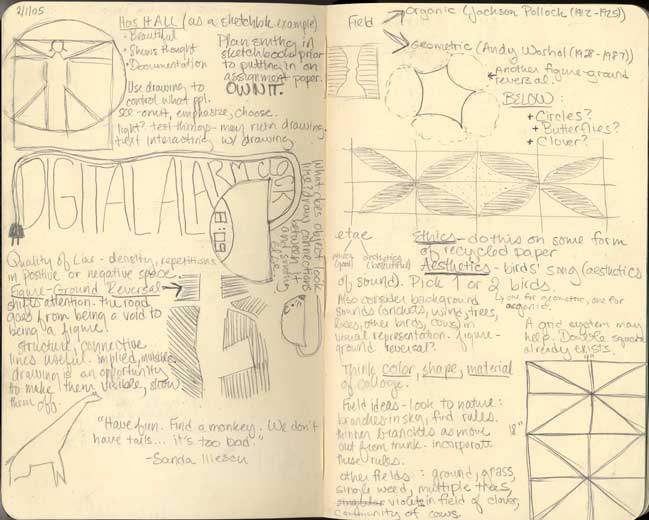 2/1/05
Has it ALL (as a sketchbk example)
• Beautiful
• Shows thought
• Documentation
Plan smthg in
sketchbook prior
to putting in on
assignment paper.
OWN IT.
Use drawing to
control what ppl.
see - omit, emphasize, choose.
light? test things - may ruin drawing.
text interacting w/ drawing
DIGITAL ALARM CLOCK
What does object look
like? draw connection
between it
and smthg
else.
Quality of Line - density, repetitions
in positive or negative space.
Figure-Ground Reversal
shifts attention. the road
goes from being a void to
being a figure.
structure, connective
lines useful. implied, invisible,
drawing is an opportunity
to make them visible, show
them off.
"Have fun. Find a monkey. We don't
have tails... it's too bad."
-Sanda Iliescu
Field
Organic (Jackson Pollock (1912-
Geometric (Andy Warhol (1928-1987))
Another figure-ground
reversal.
BELOW:
+ Circles?
+ Butterflies?
+ Clover?
etae
ethics
(good)
aesthetics
(beautiful)
Ethics - do this on some form
of recycled paper
Aesthetics - birds' song (aesthetics
of sound). Pick 1 or 2 birds.
one for geometric, one for
organic.
Also consider background
sounds (crickets, wind, trees,
bees, other birds, cows) in
visual representation. figure-
ground reversal?
A grid system may
help. Double square
already exists.
Think color, shape, material
of collage.
Field ideas - look to nature:
branches in sky, find rules.
thinner branches as move
out from trunk - incorporate
these rules.
18"
other fields: ground, grass,
single weed, multiple trees,
violets in field of clover,
community of cows.